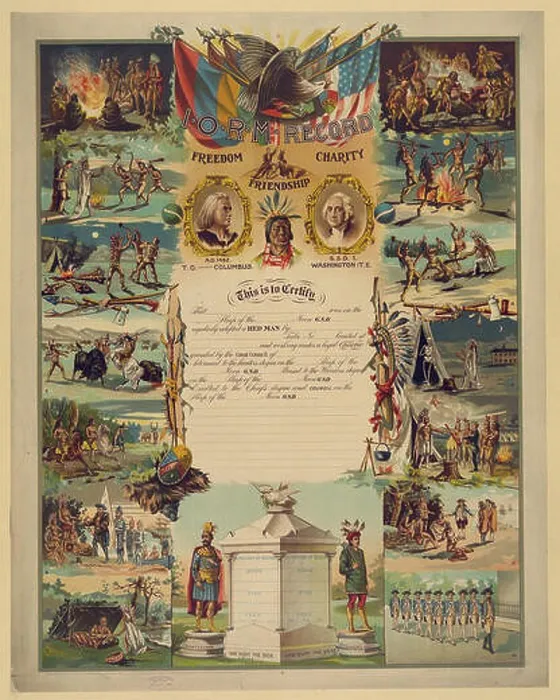 I.O.R.M. RECORD
FREEDOM CHARITY
FRIENDSHIP
A.D. 1492.
T.C. COLUMBUS.
G.S.D. 1.
WASHINGTON T.E.
This is to Certify
That was on the
Sleep of the Moon G.S.D
regularly adopted a RED MAN by
Tribe No. located at
and working under a legal Charter
granted by the GREAT COUNCIL of
Advanced to the hunters slogan on the Sleep of the
Moon G.S.D Raised to the Warriors slogan
on the Sleep of the Moon G.S.D
Exalted to the Chiefs slogan and on the
Sleep of the Moon G.S.D